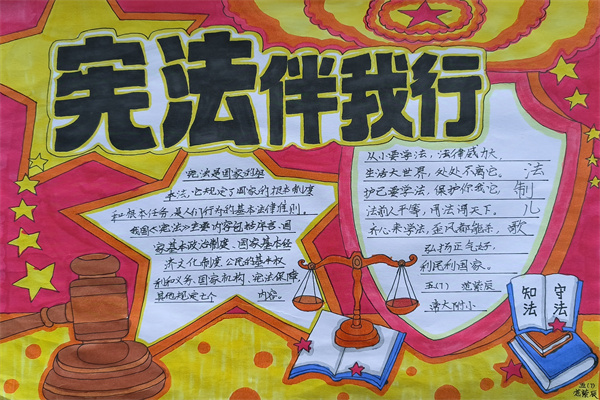 宪法伴我行
宪法是国家的根
本法,它规定了国家的根本制度
和根本任务,是人们行为的基本法律准则。
我国《宪法》的主要内容包括序言、国
家基本政治制度、国家基本经
济文化制度、公民的基本权
利和义务、国家机构、宪法保障
其他规定七个 内容。
从小要学法,法律威力大,
生活大世界,处处不离它。
护己要学法,保护你我它,
法前人平等,用法调天下。
齐心来学法,歪风都能杀,
弘扬正气好,
利民利国家。
五(1)
附小
法
制
儿
歌
知法
守法
五(1)